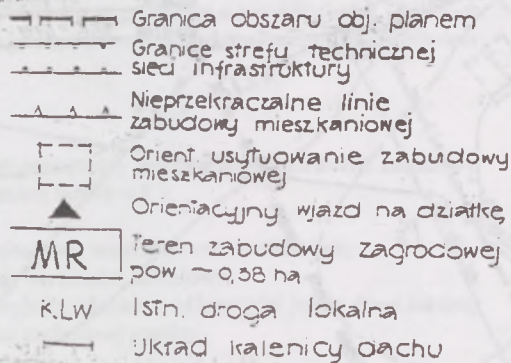 Granica obszaru obj. planem
Granice strefy technicznej
sieci infrastruktury
Nieprzekraczalne linie
zabudowy mieszkaniowej
Orient. usytuowanie zabudowy
mieszkaniowej
Orientacyjny wjazd na działkę
MR Teren zabudowy zagrodowej
pow ~ 0,38 ha
K.LW Istn. droga lokalna
Układ kalenicy dachu